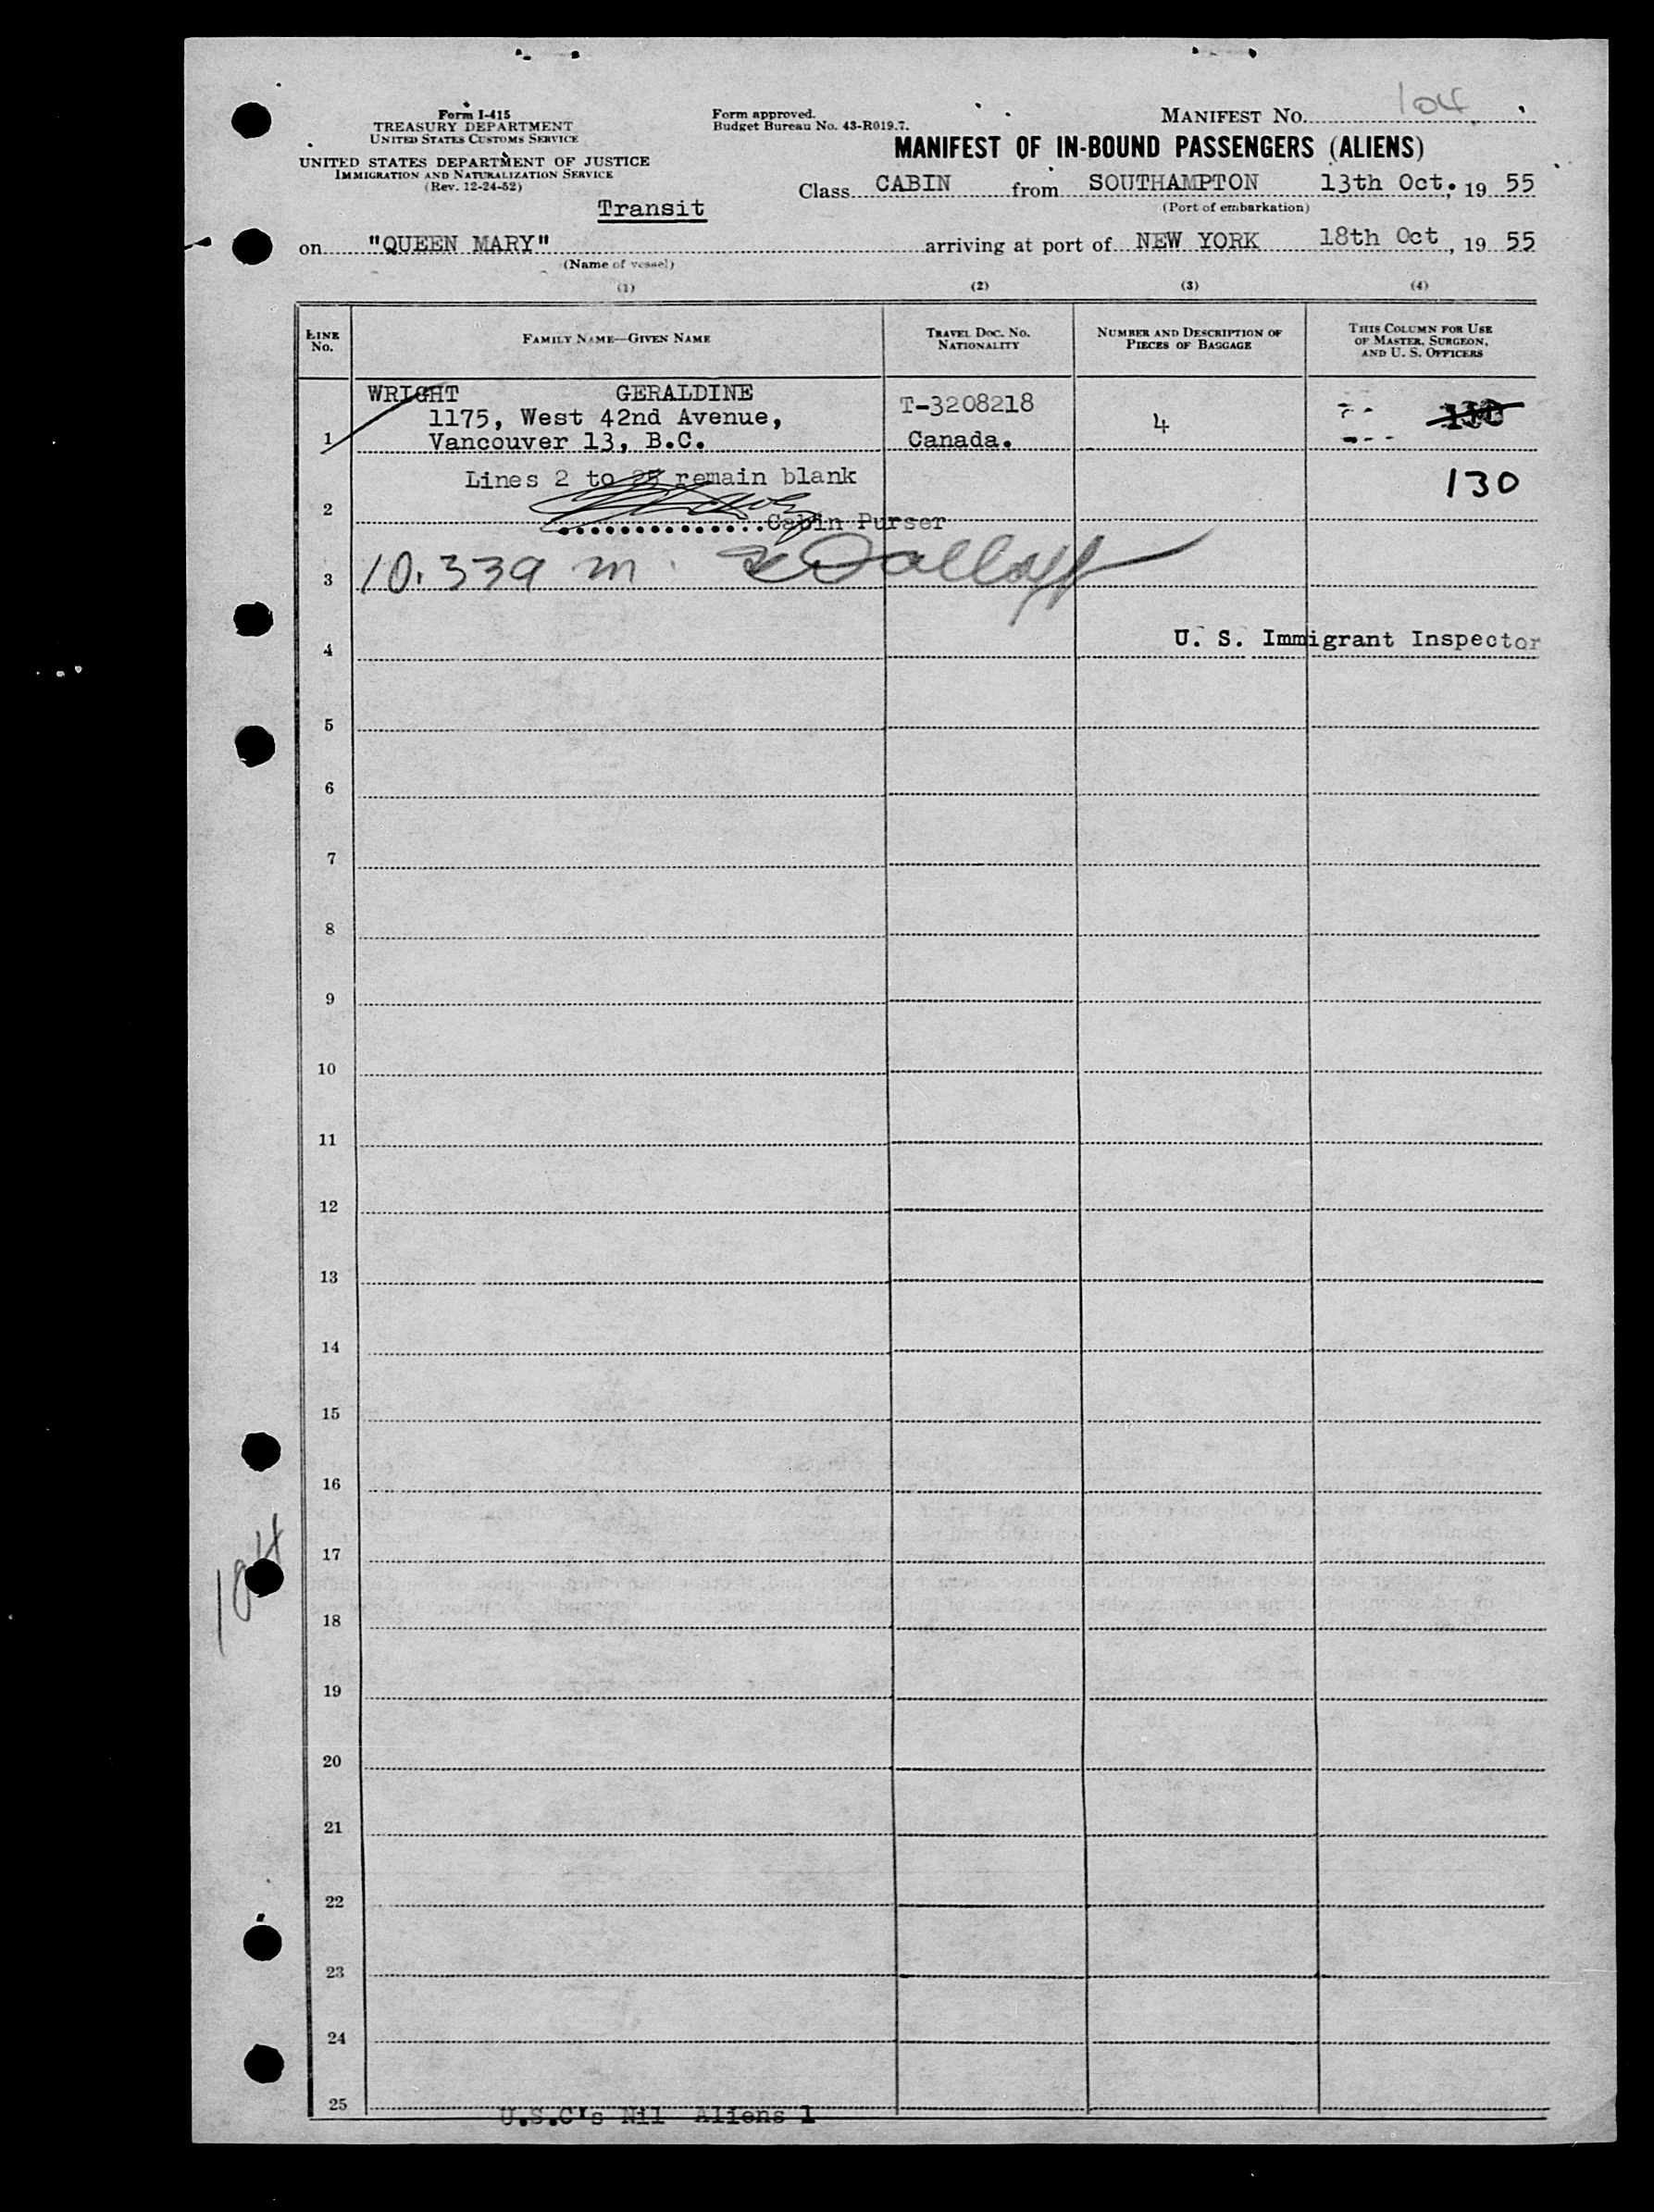 Form I-415
TREASURY DEPARTMENT
UNITED STATES CUSTOMS SERVICE
UNITED STATES DEPARTMENT OF JUSTICE
IMMIGRATION AND NATURALIZATION SERVICE
(Rev. 12-24-52)
Form approved.
Budget Bureau No. 43-R019.7.
MANIFEST NO. 104
MANIFEST OF IN-BOUND PASSENGERS (ALIENS)
Class CABIN from SOUTHAMPTON 13th Oct., 19 55
(Port of embarkation)
Transit
on "QUEEN MARY" arriving at port of NEW YORK 18th Oct, 19 55
(Name of vessel)
(1) (2) (3) (4)
LINE No. FAMILY NAME—GIVEN NAME TRAVEL DOC. NO. NATIONALITY NUMBER AND DESCRIPTION OF PIECES OF BAGGAGE THIS COLUMN FOR USE OF MASTER, SURGEON, AND U. S. OFFICERS
WRIGHT GERALDINE
1175, West 42nd Avenue, T-3208218 4 130
1 Vancouver 13, B.C. Canada.
Lines 2 to 25 remain blank 130
2 Cabin Purser
3 10.339 m.
4 U. S. Immigrant Inspector
5
6
7
8
9
10
11
12
13
14
15
16
17
104
18
19
20
21
22
23
24
25
U.S.C's Nil Aliens 1